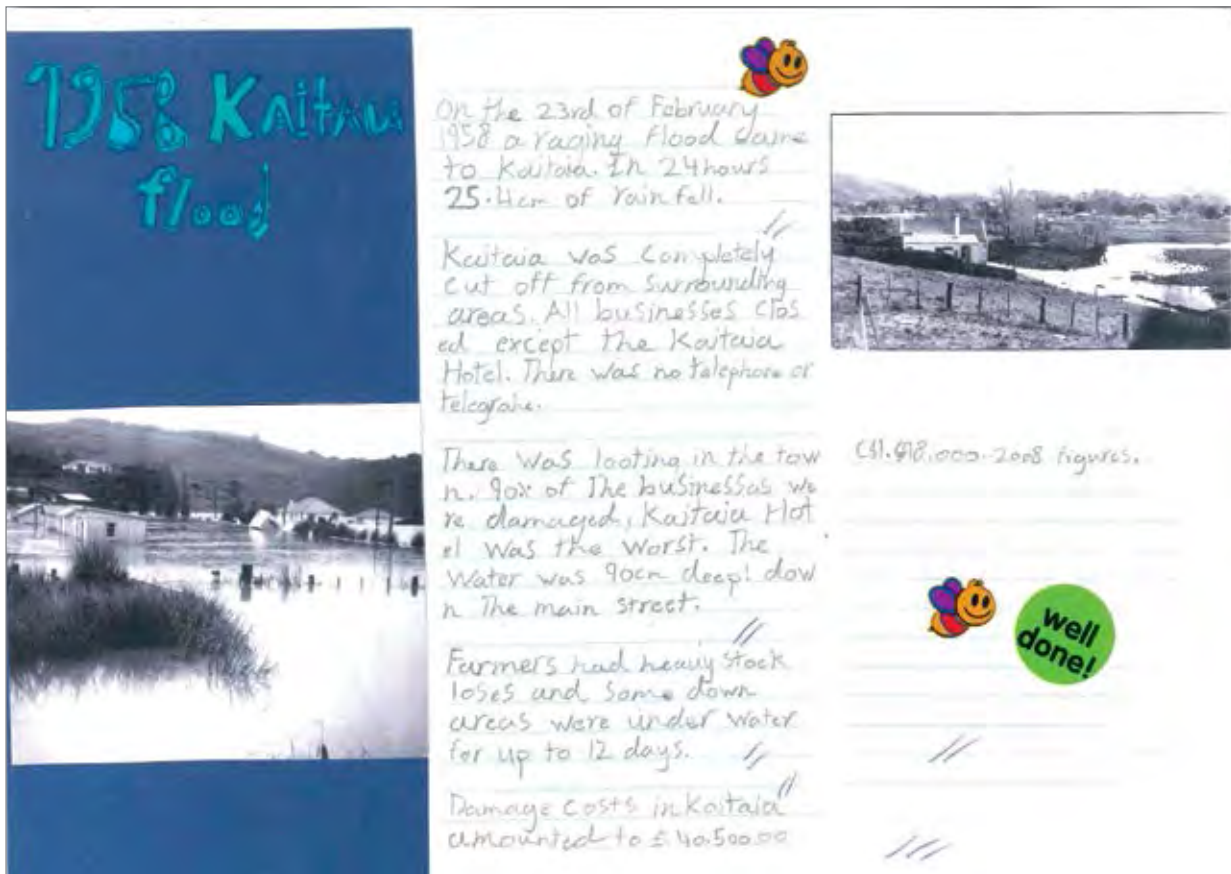 1958 Kaitaia
flood
On the 23rd of February
1958 a raging flood came
to Kaitaia. In 24 hours
25.4cm of rain fell.
Kaitaia was completely
cut off from surrounding
areas. All businesses clos
ed except the Kaitaia
Hotel. There was no telephone or
There was looting in the tow
n. 90% of The businesses we
re damaged, Kaitaia Hot
el was the worst. The
Water was 90cm deep! dow
n The main street.
Farmers had heavy stock
loses and some down
areas were under water
for up to 12 days.
Damage costs in Kaitaia
amounted to £40.500.00
2008 figures.
well
done!